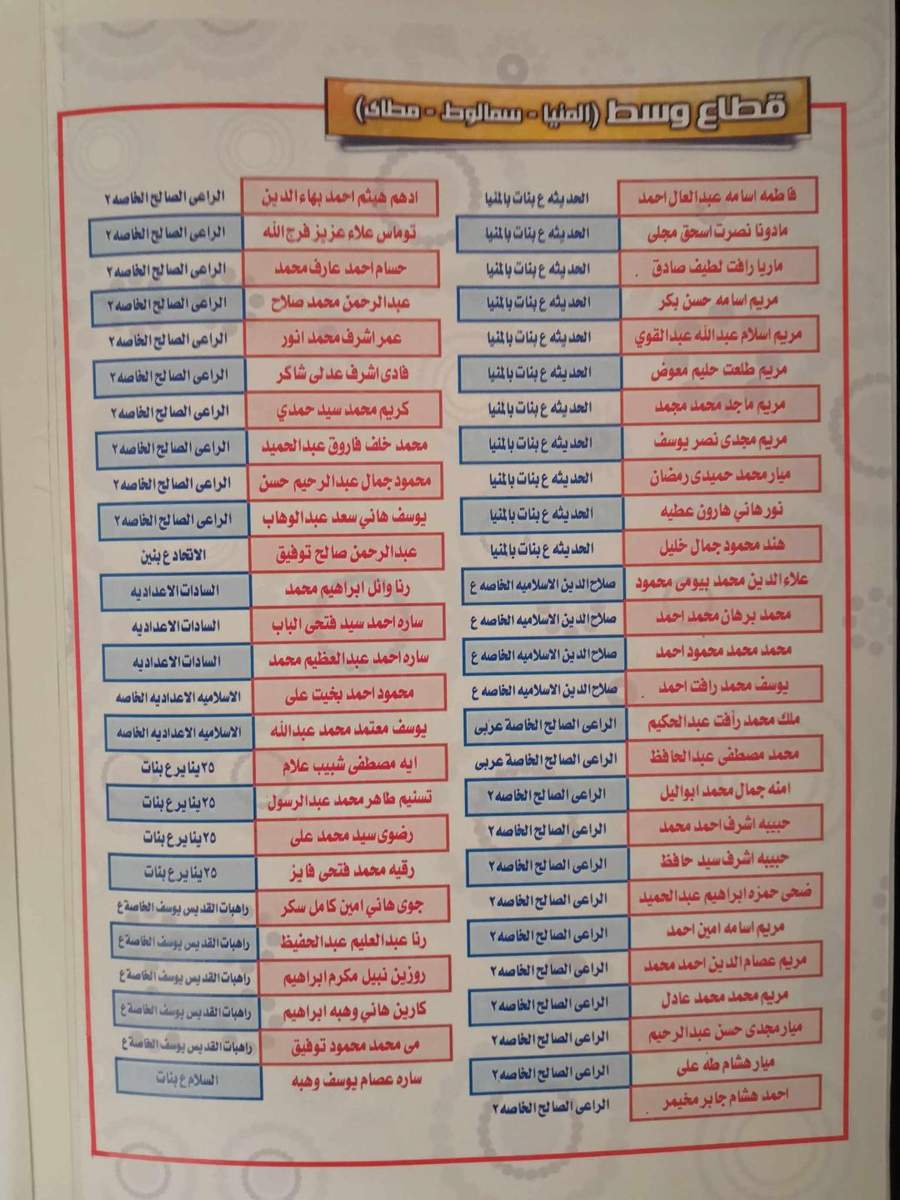 قطاع وسط (المنيا - سمالوط - مطاى)
فاطمه اسامه عبدالعال احمد الحديثه ع بنات بالمنيا
مادونا نصرت اسحق مجلى الحديثه ع بنات بالمنيا
ماريا رافت لطيف صادق الحديثه ع بنات بالمنيا
مريم اسامه حسن بكر الحديثه ع بنات بالمنيا
مريم اسلام عبدالله عبدالقوي الحديثه ع بنات بالمنيا
مريم طلعت حليم معوض الحديثه ع بنات بالمنيا
مريم ماجد محمد مجمد الحديثه ع بنات بالمنيا
مريم مجدى نصر يوسف الحديثه ع بنات بالمنيا
ميار محمد حميدى رمضان الحديثه ع بنات بالمنيا
نور هاني هارون عطيه الحديثه ع بنات بالمنيا
هند محمود جمال خليل الحديثه ع بنات بالمنيا
علاء الدين محمد بيومى محمود صلاح الدين الاسلاميه الخاصه ع
محمد برهان محمد احمد صلاح الدين الاسلاميه الخاصه ع
محمد محمد محمود احمد صلاح الدين الاسلاميه الخاصه ع
يوسف محمد رافت احمد صلاح الدين الاسلاميه الخاصه ع
ملك محمد رأفت عبدالحكيم الراعى الصالح الخاصة عربى
محمد مصطفى عبدالحافظ الراعى الصالح الخاصة عربى
امنه جمال محمد ابواليل الراعى الصالح الخاصه ٢
حبيبه اشرف احمد محمد الراعى الصالح الخاصه ٢
حبيبه اشرف سيد حافظ الراعى الصالح الخاصه ٢
ضحى حمزه ابراهيم عبدالحميد الراعى الصالح الخاصه ٢
مريم اسامه امين احمد الراعى الصالح الخاصه ٢
مريم عصام الدين احمد محمد الراعى الصالح الخاصه ٢
مريم محمد محمد عادل الراعى الصالح الخاصه ٢
ميار مجدى حسن عبدالرحيم الراعى الصالح الخاصه ٢
ميار هشام طه على الراعى الصالح الخاصه ٢
احمد هشام جابر مخيمر الراعى الصالح الخاصه ٢
ادهم هيثم احمد بهاء الدين الراعى الصالح الخاصه ٢
توماس علاء عزيز فرج الله الراعى الصالح الخاصه ٢
حسام احمد عارف محمد الراعى الصالح الخاصه ٢
عبدالرحمن محمد صلاح الراعى الصالح الخاصه ٢
عمر اشرف محمد انور الراعى الصالح الخاصه ٢
فادى اشرف عدلى شاكر الراعى الصالح الخاصه ٢
كريم محمد سيد حمدي الراعى الصالح الخاصه ٢
محمد خلف فاروق عبدالحميد الراعى الصالح الخاصه ٢
محمود جمال عبدالرحيم حسن الراعى الصالح الخاصه ٢
يوسف هاني سعد عبدالوهاب الراعى الصالح الخاصه ٢
عبدالرحمن صالح توفيق الاتحاد ع بنين
رنا وائل ابراهيم محمد السادات الاعداديه
ساره احمد سيد فتحى الباب السادات الاعداديه
ساره احمد عبدالعظيم محمد السادات الاعداديه
محمود احمد بخيت على الاسلاميه الاعداديه الخاصه
يوسف معتمد محمد عبدالله الاسلاميه الاعداديه الخاصه
ايه مصطفى شبيب علام ٢٥ يناير ع بنات
تسنيم طاهر محمد عبدالرسول ٢٥ يناير ع بنات
رضوى سيد محمد على ٢٥ يناير ع بنات
رقيه محمد فتحى فايز ٢٥ يناير ع بنات
جوى هاني امين كامل سكر راهبات القديس يوسف الخاصة ع
رنا عبدالعليم عبدالحفيظ راهبات القديس يوسف الخاصة ع
روزين نبيل مكرم ابراهيم راهبات القديس يوسف الخاصة ع
كارين هاني وهبه ابراهيم راهبات القديس يوسف الخاصة ع
مى محمد محمود توفيق راهبات القديس يوسف الخاصة ع
ساره عصام يوسف وهبه السلام ع بنات